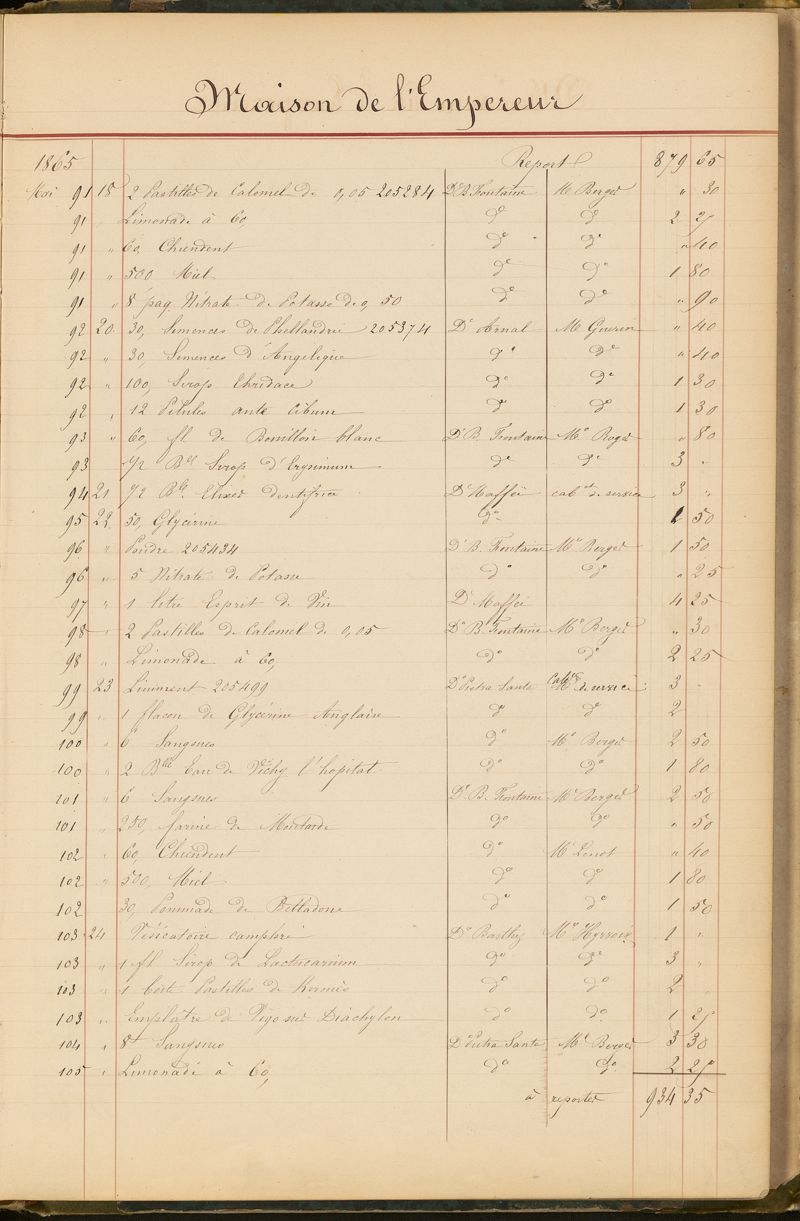 Maison de l'Empereur
1865 Report 879 65
Mai 91 18 2 Pastilles de Calomel de 0,05 205284 Dr B. Fontaine Mr Berger " 30
91 Limonade à 60, do do 2 25
91 " 60, Chiendent do do " 40
91 " 500 Miel do do 1 80
91 " 8 paq Nitrate de Potasse de 0, 50 do do " 90
92 20 30, Semences de Phellandrie 205374 Dr Arnal Mr Guerin " 40
92 " 30, Semences d'Angelique do do " 40
92 " 100, Sirop Thridace do do 1 30
92 " 12 Pilules ante cibum do do 1 30
93 " 60, fl de Bouillon blanc Dr B. Fontaine Mr Roger " 80
93 1/2 Blle Sirop d'Erysimum do do 3 "
94 21 1/2 Blle Elixir dentifrice Dr Maffei cabet de service 3 "
95 22 50, Glycérine do 1 50
96 " Poudre 205434 Dr B. Fontaine Mr Berger 1 50
96 " 5 Nitrate de Potasse do do " 25
97 " 1 litre Esprit de Vin Dr Maffei 4 25
98 " 2 Pastilles de Calomel de 0,05 Dr B. Fontaine Mr Berger " 30
98 " Limonade à 60, do do 2 25
99 23 Liniment 205499 Dr Pietra Santa Cabet de service 3 "
99 " 1 flacon de Glycérine Anglaise do do 2
100 " 6 Sangsues do Mr Berger 2 50
100 " 2 Blle Eau de Vichy l'hopital do do 1 80
101 " 6 Sangsues Dr B. Fontaine Mr Berger 2 50
101 " 250, farine de Moutarde do do " 50
102 " 60, Chiendent do Mr Lenot " 40
102 " 500, Miel do do 1 80
102 30, Pommade de Belladone do do 1 50
103 24 Vésicatoire camphré Dr Barthez Mr Hyrvoix 1 "
103 " 1 fl Sirop de Lactucarium do do 3 "
103 " 1 boite Pastilles de Kermès do do 2 "
103 " Emplâtre de Vigo sur Diachylon do do 1 25
104 " 8 Sangsues Dr Pietra Santa Mr Berger 3 30
105 " Limonade à 60, do do 2 25
à reporter 934 35